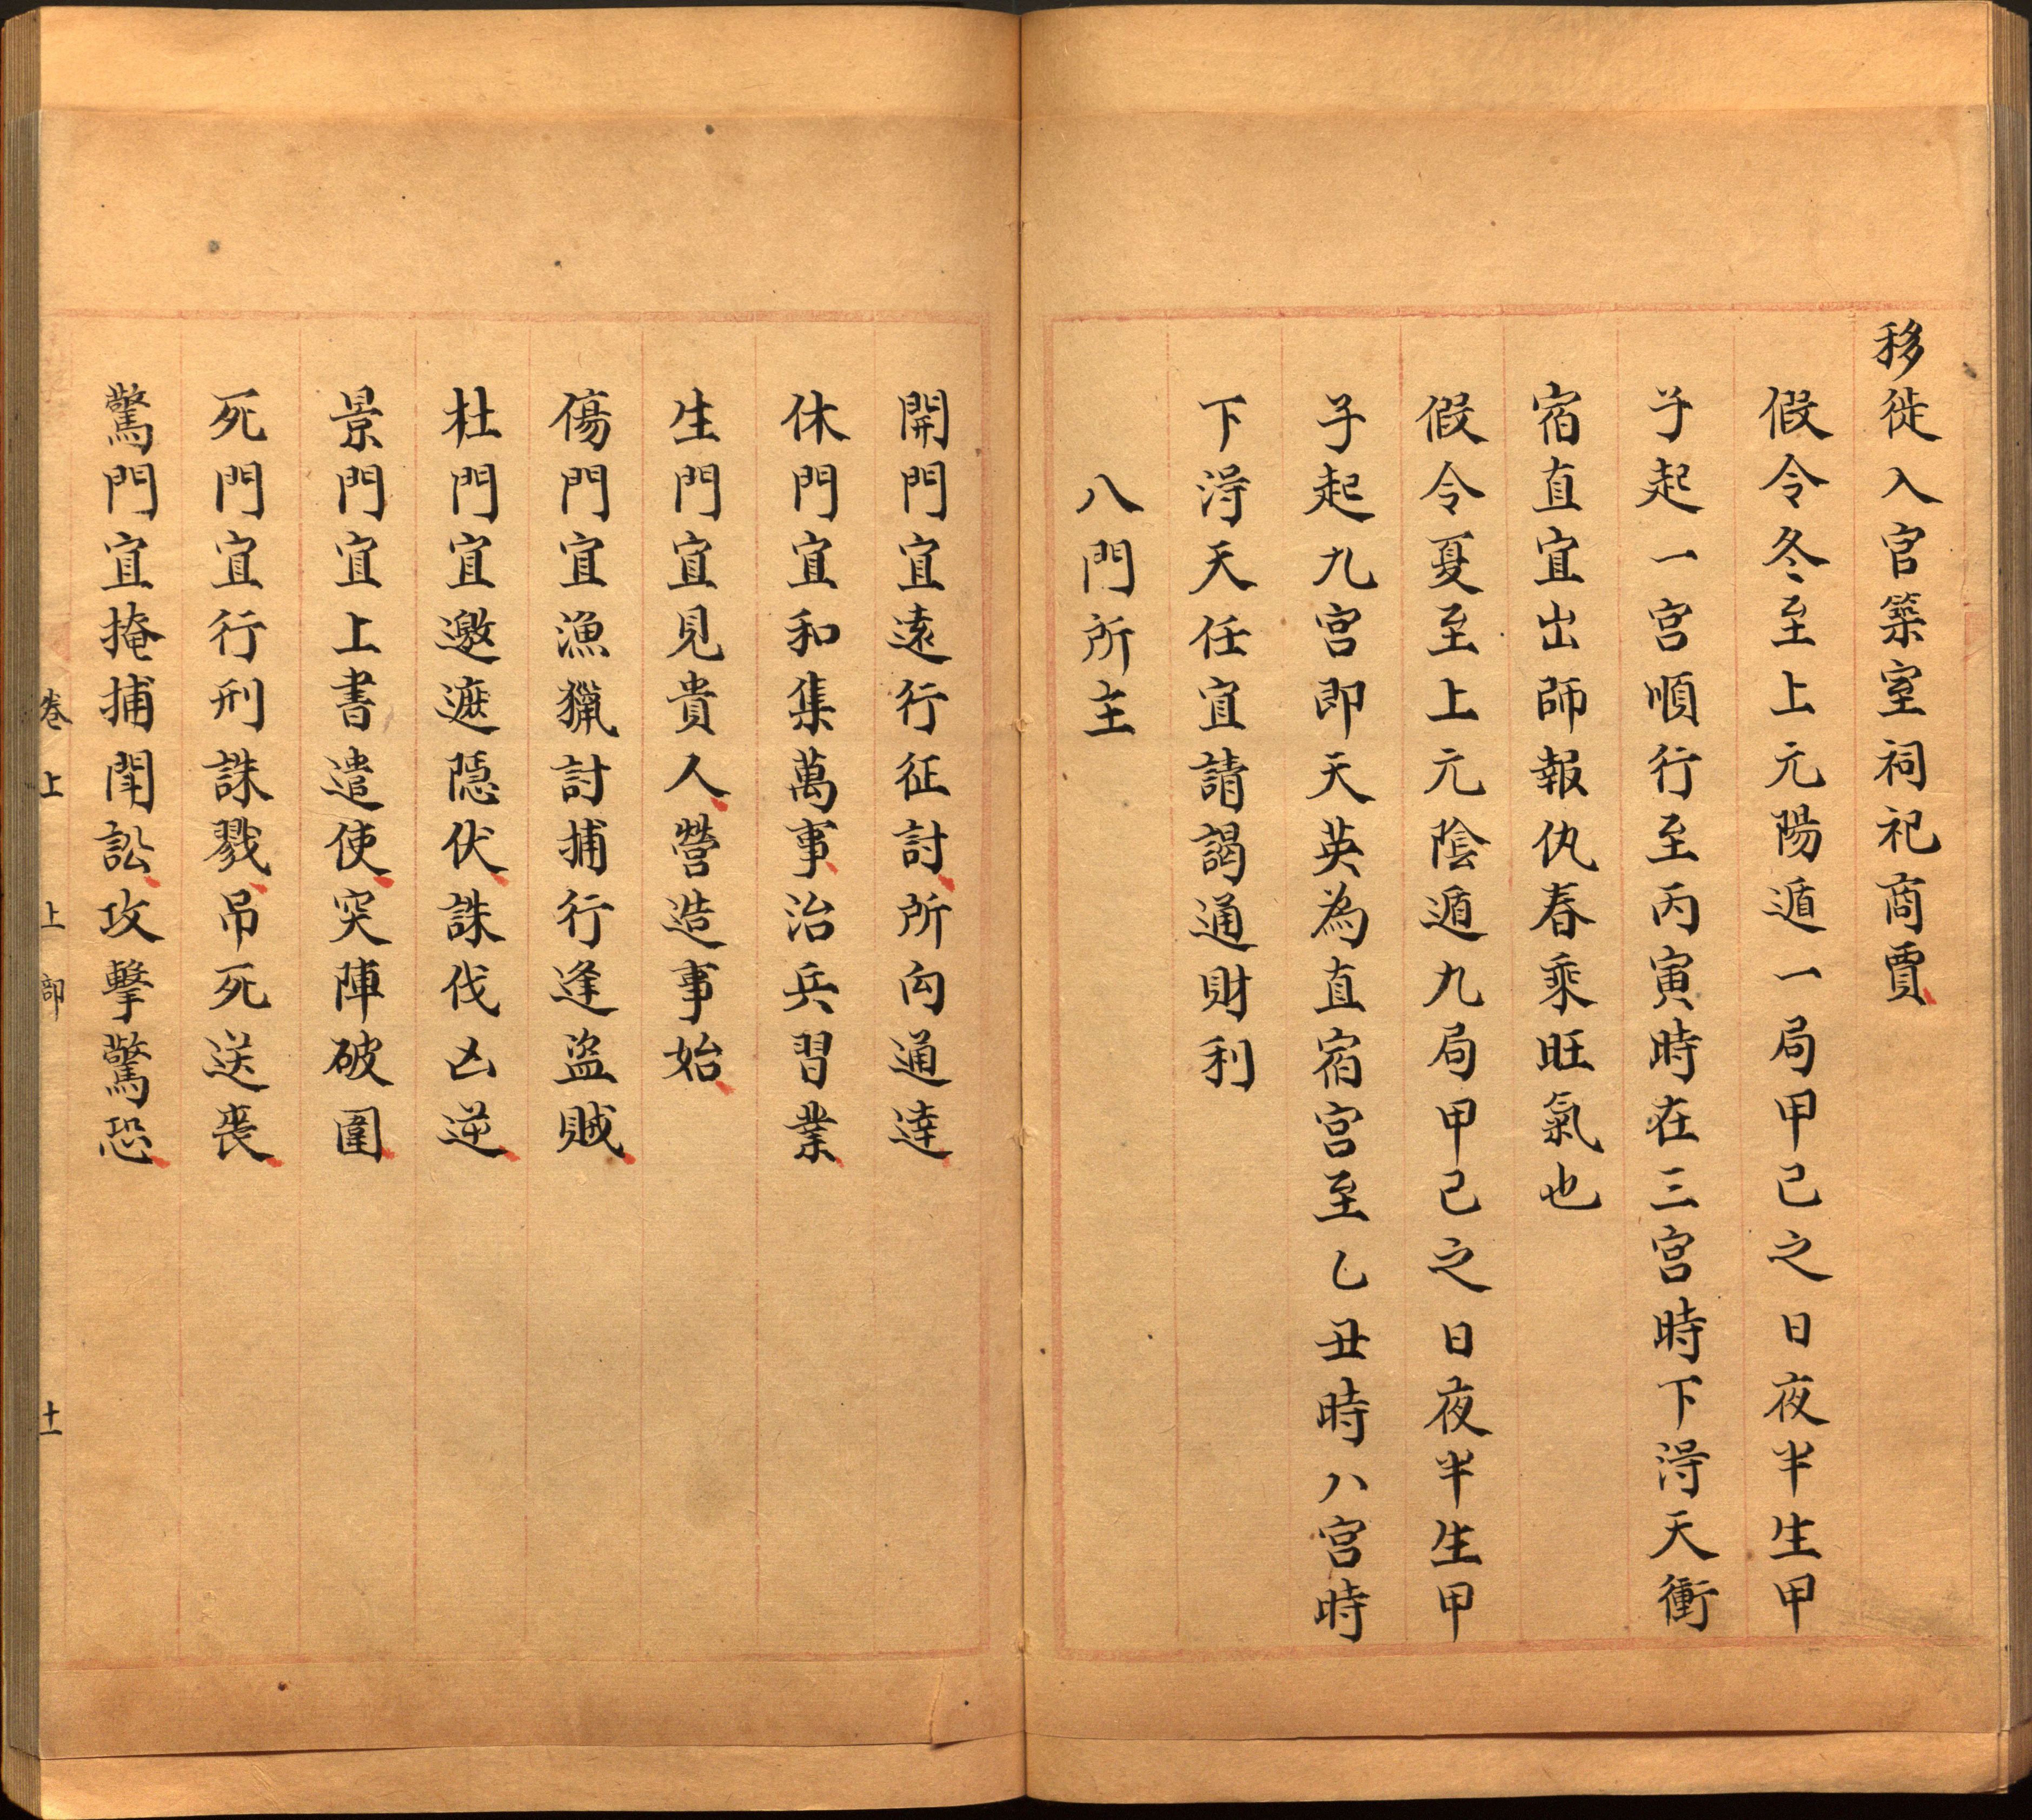 移徙入官築室祠祀商賈
假令冬至上元陽遁一局甲己之日夜半生甲
子起一宮順行至丙寅時在三宮時下淂天衝
宿直宜出師報仇春乘旺氣也
假令夏至上元陰遁九局甲己之日夜半生甲
子起九宮即天英為直宿宮至乙丑時八宮時
下淂天任宜請謁通財利
八門所主
開門宜遠行征討所向通達
休門宜和集萬事治兵習業
生門宜見貴人營造事始
傷門宜漁獵討捕行逢盜賊
杜門宜邀遮隱伏誅伐凶逆
景門宜上書遣使突陣破圍
死門宜行刑誅戮吊死送喪
驚門宜掩捕鬥訟攻擊驚恐
卷上 上部 十一